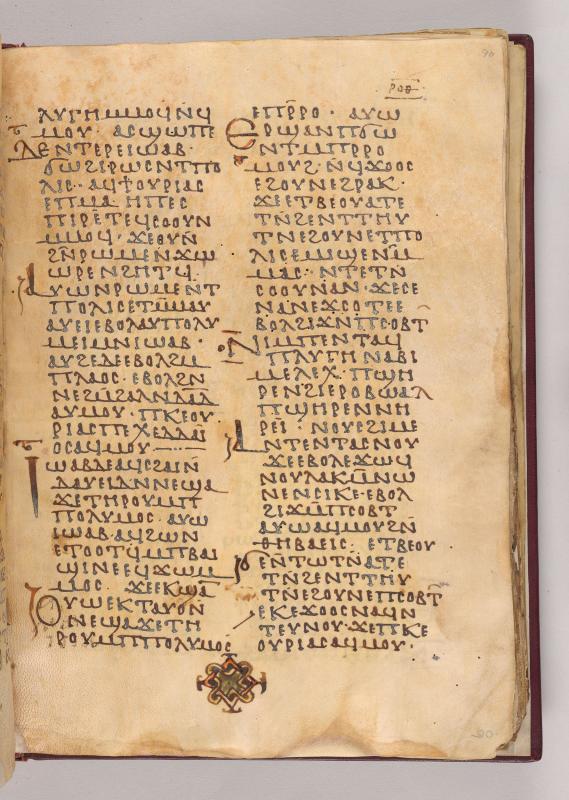 ⲣⲟⲑ
ⲗⲩⲅⲏ ⲙⲙⲟϥ ⲛϥ
ⲙⲟⲩ· ⲁⲥϣⲱⲡⲉ
ⲇⲉ ⲛⲧⲉⲣⲉⲓⲱⲁⲃ·
ϭⲱ ϩⲓⲣⲱⲥ ⲛⲧⲡⲟ
ⲗⲓⲥ· ⲁϥϯ ⲟⲩⲣⲓⲁⲥ
ⲉⲡⲙⲁ ⲏⲡⲉⲥ
ⲡⲓⲣⲉⲧⲉϥⲥⲟⲟⲩⲛ
ⲙⲙⲟϥ· ϫⲉⲟⲩⲛ̄
ϩⲛ̄ⲣⲱⲙⲉⲛϫⲱ
ⲱⲣⲉ ⲛϩⲏⲧϥ̄·
ⲁⲩⲱ ⲛⲣⲱⲙⲉ ⲛⲧ
ⲡⲟⲗⲓⲥ ⲉⲧⲙ̄ⲙⲁⲩ
ⲁⲩⲉⲓ ⲉⲃⲟⲗ ⲁⲩⲡⲟⲗⲩ
ⲙⲉⲓ ⲙⲛ ⲓⲱⲁⲃ·
ⲁⲩϩⲉ ⲇⲉ ⲉⲃⲟⲗ ϩⲙ
ⲡⲗⲁⲟⲥ· ⲉⲃⲟⲗ ϩⲛ
ⲛⲉϩⲙϩⲁⲗ ⲛⲇⲁⲇ
ⲁⲩⲙⲟⲩ· ⲡⲕⲉⲟⲩ
ⲣⲓⲁⲥ ⲡⲉⲭⲉⲗⲗⲁⲓ
ⲟⲥ ⲁϥⲙⲟⲩ
ⲓⲱⲁⲃ ⲇⲉ ⲁϥⲥϩⲁⲓ ⲛ̄
ⲇⲁⲩⲉⲓⲇ ⲛⲛⲉϣⲁ
ϫⲉ ⲧⲏⲣⲟⲩ ⲙⲡ
ⲡⲟⲗⲩⲙⲟⲥ· ⲁⲩⲱ
ⲓⲱⲁⲃ· ⲁϥϩⲱⲛ
ⲉⲧⲟⲟⲧϥ ⲙⲡⲃⲁⲓ
ϣⲓⲛⲉ ⲉϥϫⲱ ⲙ
ⲙⲟⲥ· ϫⲉ ⲉⲕϣⲁ
ⲟⲩⲱ ⲉⲕⲧⲁⲩⲟ ⲛ̄
ⲛⲉϣⲁϫⲉ ⲧⲏ
ⲣⲟⲩ ⲙⲡⲡⲟⲗⲩⲙⲟⲥ
ⲉⲡⲣ̄ⲣⲟ· ⲁⲩⲱ
ⲉⲣϣⲁⲛⲡϭⲱ
ⲛⲧ ⲙⲡⲣⲣⲟ
ⲙⲟⲩϩ· ⲛϥϫⲟⲟⲥ
ⲉϩⲟⲩⲛ ⲉϩⲣⲁⲕ·
ϫⲉ ⲉⲧⲃⲉ ⲟⲩ ⲁⲧⲉ
ⲧⲛ̄ϩⲉⲛⲧⲏⲩ
ⲧⲛ ⲉϩⲟⲩⲛ ⲉⲧⲡⲟ
ⲗⲓⲥ ⲉⲙⲓϣⲉ ⲛⲙ̄
ⲙⲁⲥ· ⲛⲧⲉⲧⲛ̄
ⲥⲟⲟⲩⲛ ⲁⲛ· ϫⲉ ⲥⲉ
ⲛⲁⲛⲉϫ ⲥⲟⲧⲉ ⲉ
ⲃⲟⲗ ϩⲓϫⲛ ⲡⲥⲟⲃⲧ̄
ⲛⲓⲙ ⲡⲉⲛⲧⲁϥ
ⲡⲗⲩⲅⲏ ⲛⲁⲃⲓ
ⲙⲉⲗⲉⲭ· ⲡϣⲏ
ⲣⲉ ⲛϩⲓⲉⲣⲟⲃⲱⲁⲗ
ⲡϣⲏⲣⲉ ⲛⲛⲏ
ⲣⲉⲓ· ⲛⲟⲩⲥϩⲓⲙⲉ
ⲁⲛ ⲧⲉⲛⲧⲁⲥⲛⲟⲩ
ϫⲉ ⲉⲃⲟⲗ ⲉϫⲱϥ
ⲛⲟⲩⲗⲁⲕⲙ̄ ⲛⲱ
ⲛⲉ ⲛⲥⲓⲕⲉ· ⲉⲃⲟⲗ
ϩⲓϫⲙ̄ ⲡⲥⲟⲃⲧ
ⲁⲩⲱ ⲁϥⲙⲟⲩ ϩⲛ̄
ⲑⲏⲃⲁⲉⲓⲥ· ⲉⲧⲃⲉ ⲟⲩ
ⲛ̄ⲧⲱⲧⲛ̄ ⲁⲧⲉ
ⲧⲛ̄ϩⲉⲛⲧⲏⲩ
ⲧⲛ̄ ⲉϩⲟⲩⲛ ⲉⲡⲥⲟⲃⲧ̄
ⲉⲕⲉϫⲟⲟⲥ ⲛⲁϥ ⲛ
ⲧⲉⲩⲛⲟⲩ· ϫⲉ ⲡⲕⲉ
ⲟⲩⲣⲓⲁⲥ ⲁϥⲙⲟⲩ·